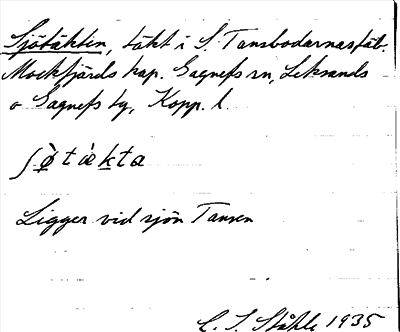 Sjötäkten, täkt i S. Tansbodarnas fäb.
Mockfjärds kap. Gagnefs sn, Leksands
o Gagnefs tg, Kopp. l.
ʃø̀tækta
Ligger vid sjön Tansen
C. I. Ståhle 1935